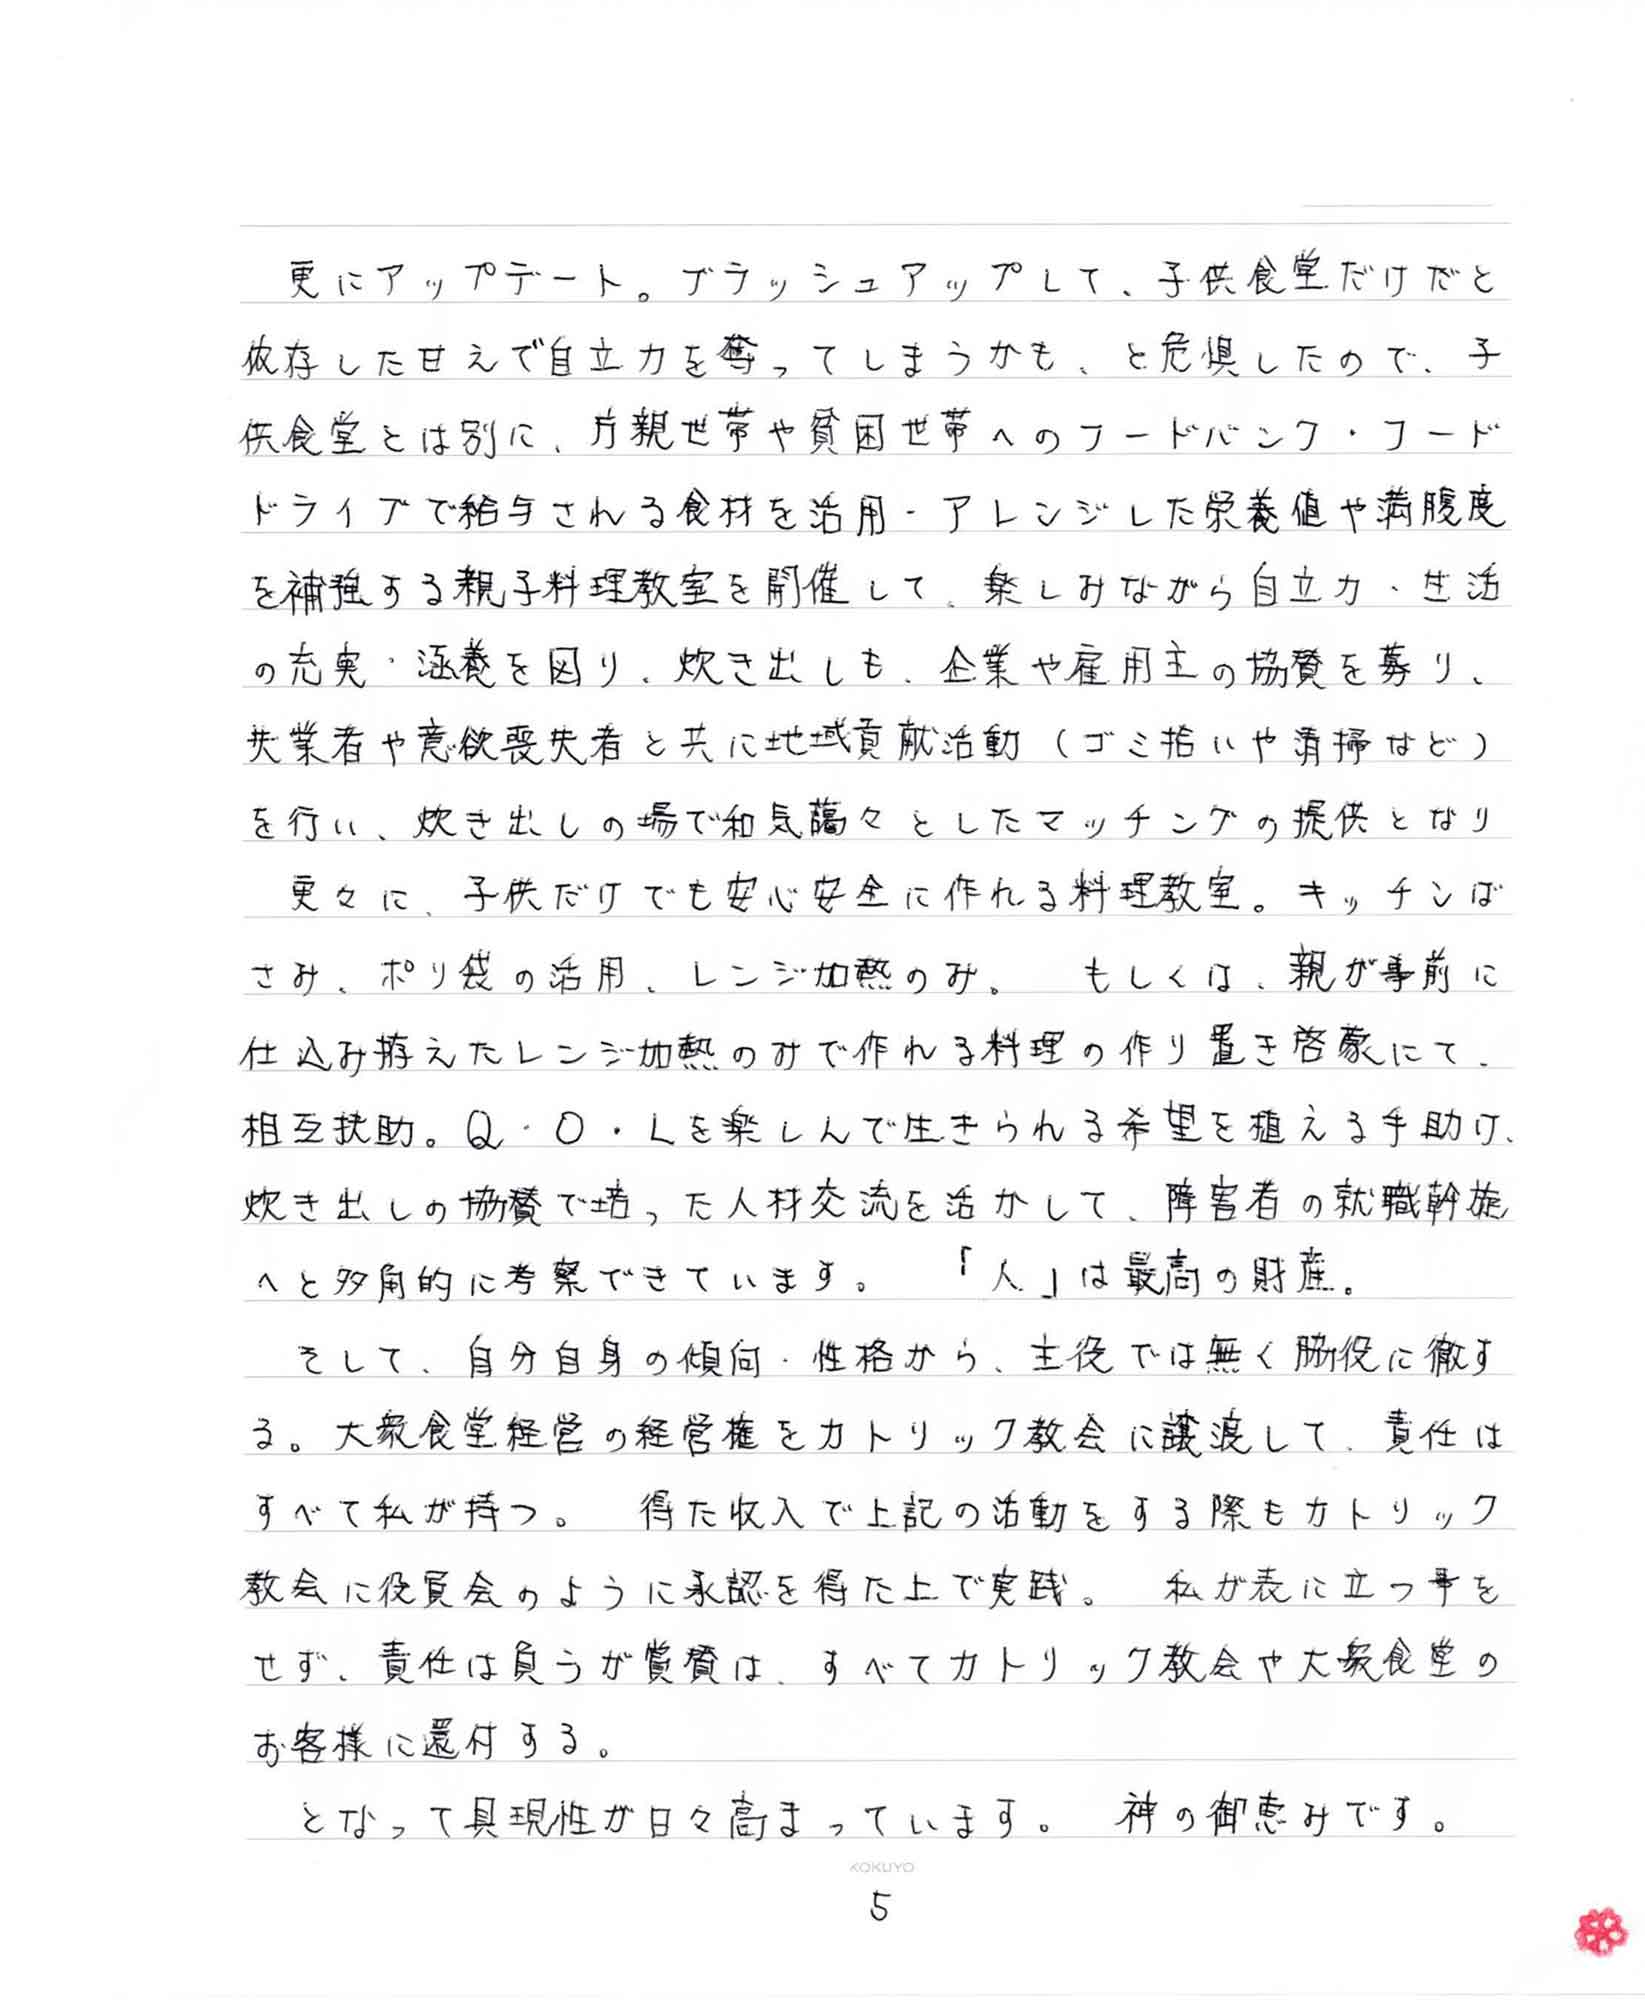 更にアップデート。ブラッシュアップして、子供食堂だけだと
依存した甘えで自立力を奪ってしまうかも、と危惧したので、子
供食堂とは別に、片親世帯や貧困世帯へのフードバンク・フード
ドライブで給与される食材を活用・アレンジした栄養値や満腹度
を補強する親子料理教室を開催して、楽しみながら自立力・生活
の充実・涵養を図り、炊き出しも、企業や雇用主の協賛を募り、
失業者や意欲喪失者と共に地域貢献活動(ゴミ拾いや清掃など)
を行い、炊き出しの場で和気藹々としたマッチングの提供となり
更々に、子供だけでも安心安全に作れる料理教室。キッチンば
さみ、ポリ袋の活用、レンジ加熱のみ。 もしくは、親が事前に
仕込み拵えたレンジ加熱のみで作れる料理の作り置き啓蒙にて、
相互扶助。Q・O・Lを楽しんで生きられる希望を植える手助け、
炊き出しの協賛で培った人材交流を活かして、障害者の就職幹旋
へと多角的に考察できています。 「人」は最高の財産。
そして、自分自身の傾向・性格から、主役では無く脇役に徹す
る。大衆食堂経営の経営権をカトリック教会に譲渡して、責任は
すべて私が持つ。 得た収入で上記の活動をする際もカトリック
教会に役員会のように承認を得た上で実践。 私が表に立つ事を
せず、責任は負うが賞賛は、すべてカトリック教会や大衆食堂の
お客様に還付する。
となって具現性が日々高まっています。 神の御恵みです。
KOKUYO
5